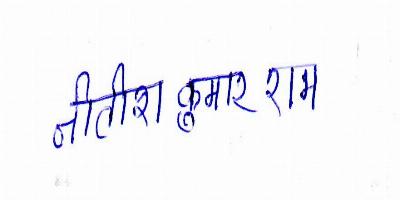 नीतीश कुमार राम